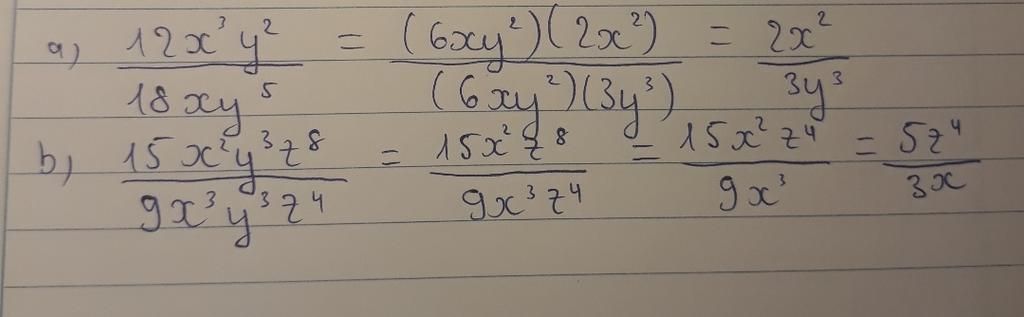 a) 12x³y² / 18xy⁵ = (6xy²)(2x²) / (6xy²)(3y³) = 2x² / 3y³
b) 15x²y³z⁸ / 9x³y³z⁴ = 15x²z⁸ / 9x³z⁴ = 15x²z⁴ / 9x³ = 5z⁴ / 3x